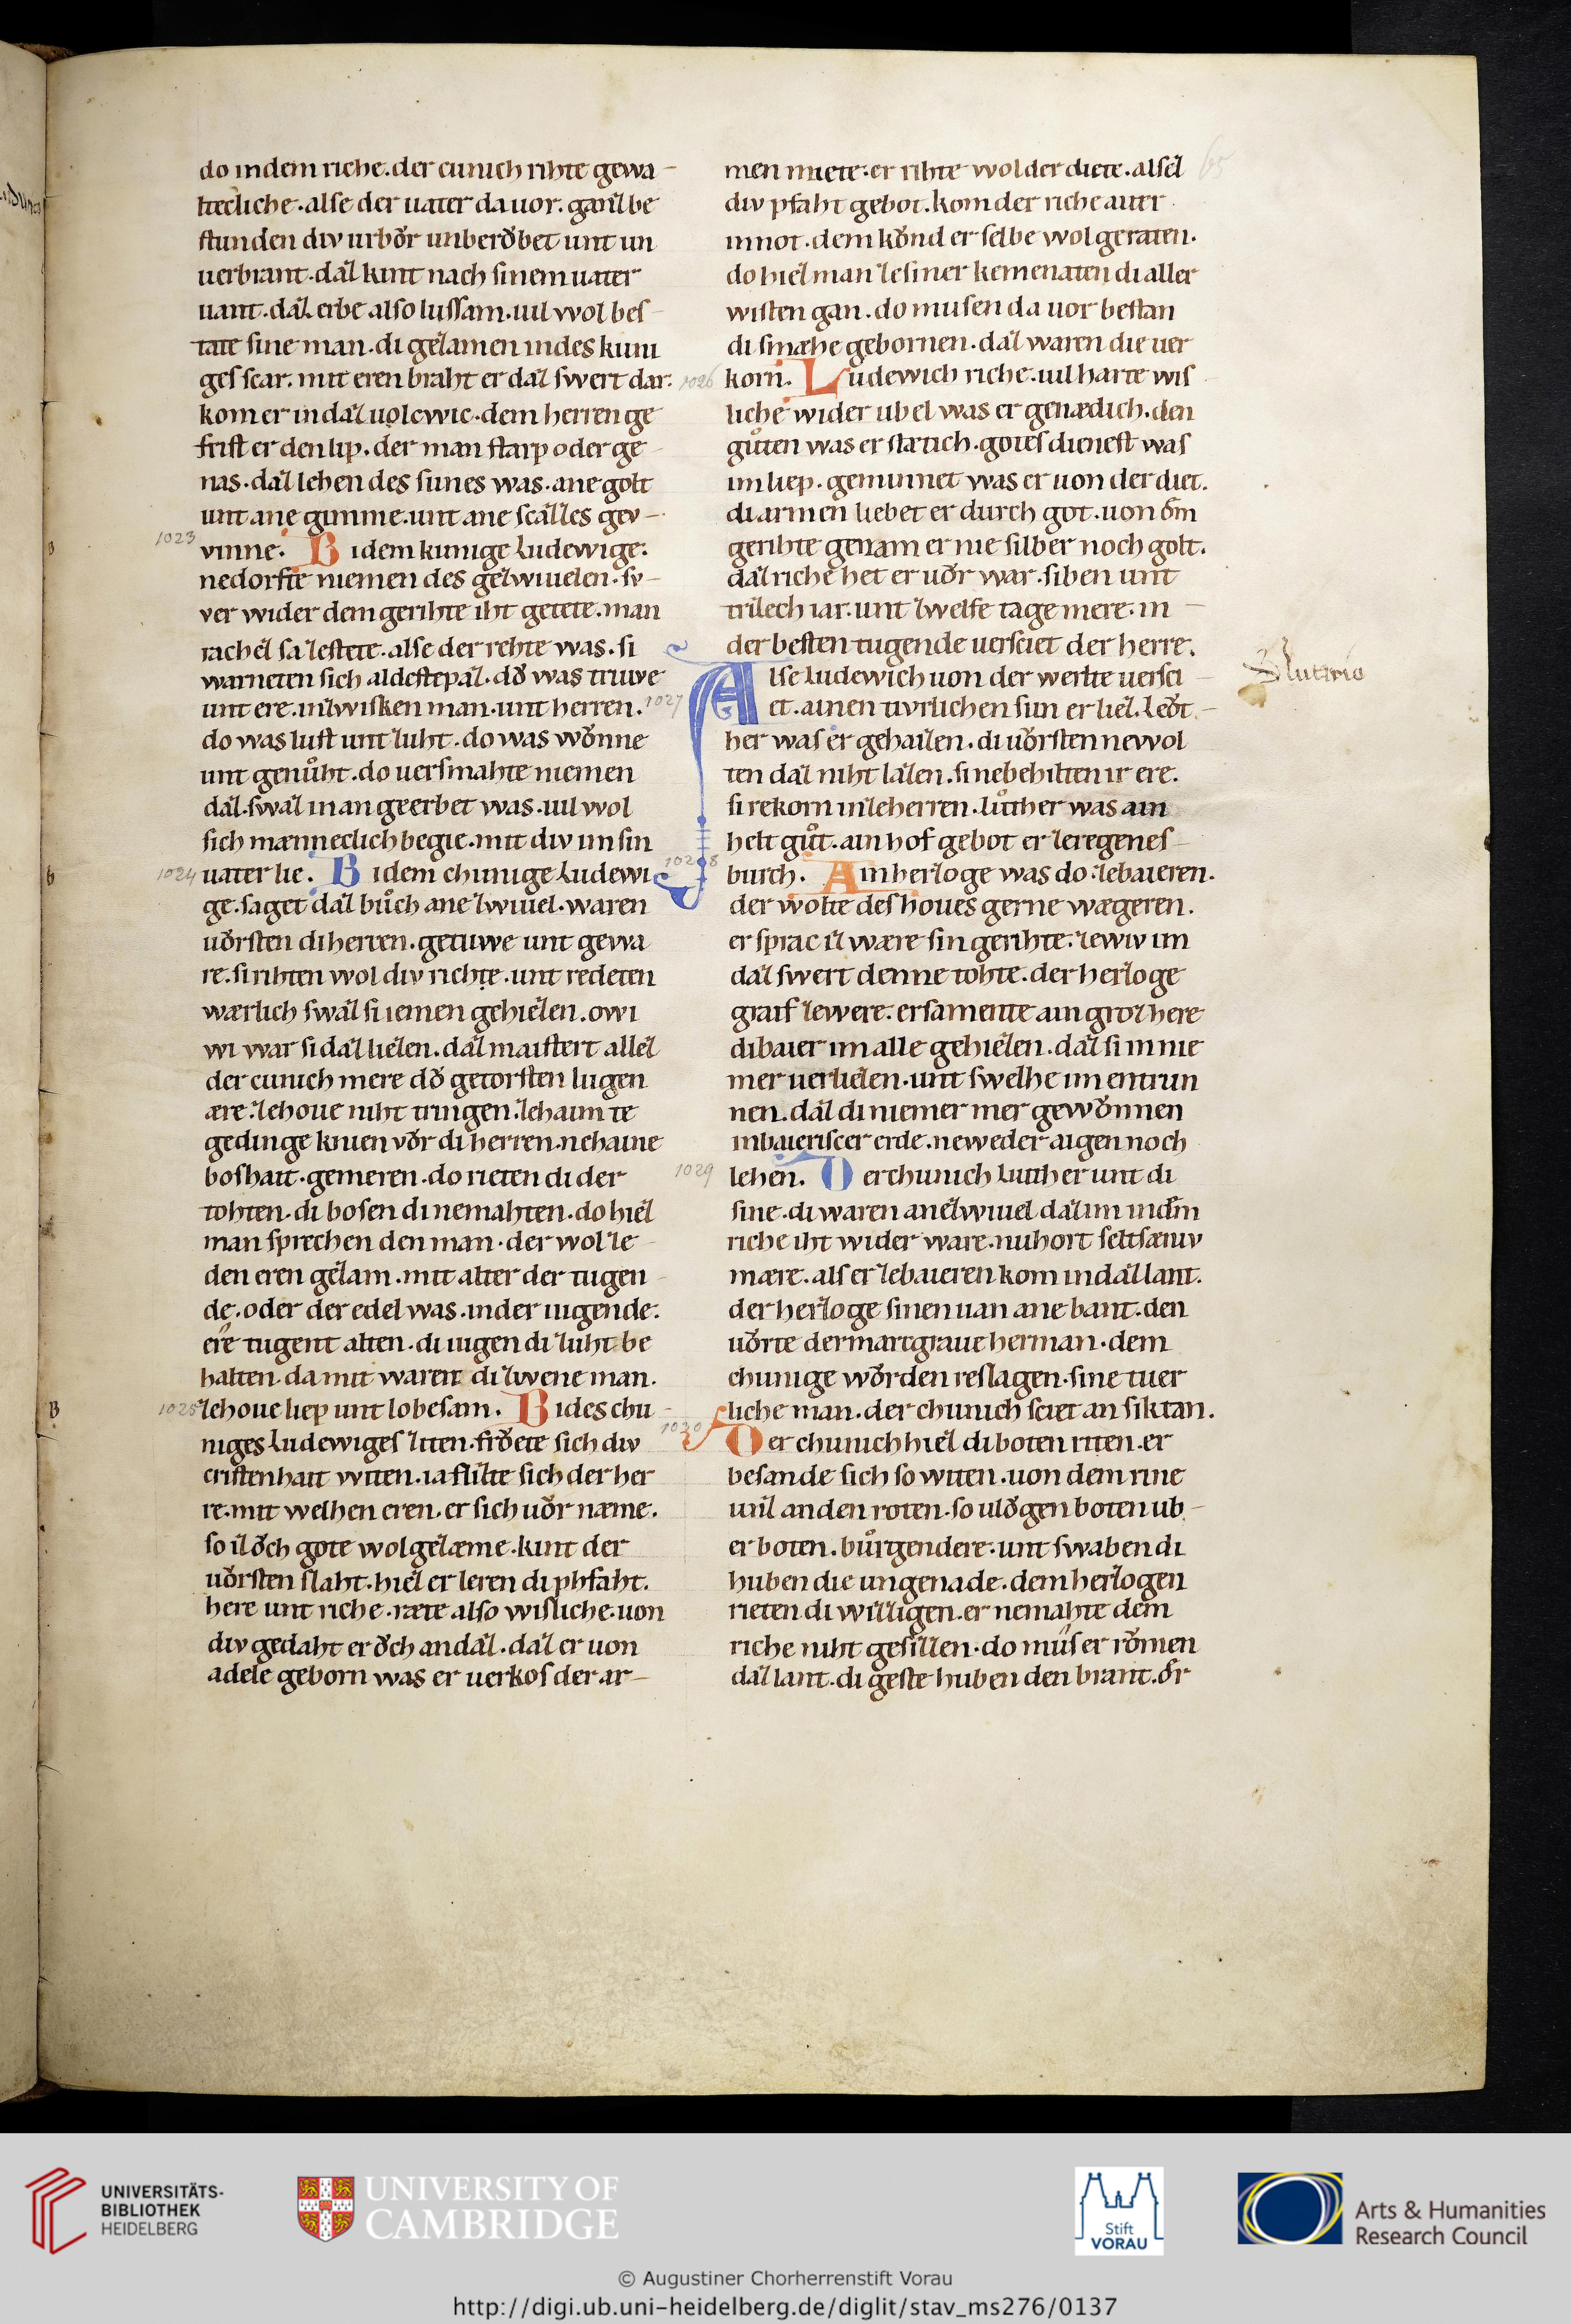 do indem riche. der cunich rihte gewa-
ltecliche. alse der uater da uor. ganz be
stunden div urbor unberöbet unt un
uerbrant. daz kint nach sinem uater
uant. daz erbe also lussam. uil wol bes-
tate sine man. di gezamen in des kuni
ges scar. mit eren braht er daz swert dar.
1026
kom er in daz uolcwic. dem herren ge
frist er den lip. der man starp oder ge-
nas. daz lehen des sunes was. ane golt
unt ane gimme. unt ane scazzes gev-
1023
vinne. Bi dem kunige Ludewige.
nedorfte niemen des gezwiuelen. sv-
ver wider dem gerihte iht getete. man
rachez sa zestete. alse der rehte was. si
warneten sich aldestepaz. do was truwe
unt ere. inzwisken man. unt herren.
1027
do was luft unt zuht. do was wonne
unt genuht. do uersmahte niemen
daz. swaz in angeerbet was. uil wol
sich mænneclich begie. mit div im sin
1024
uater lie. Bi dem chunige Ludewi-
1028
ge. saget daz buch ane zwiuel. waren
uorsten di herren. getuwe unt gewa
re. si rihten wol div richte. unt redeten
wærlich swaz si iemen gehiezen. owi
wi war si daz liezen. daz maistert allez
der cunich mere do getorsten lugen
ære. zehoue niht tringen. zehaim te
gedinge knien vor di herren. nehaine
boshait. gemeren. do rieten di der
1029
tohten. di bosen di nemahten. do hiez
man sprechen den man. der wol ze-
den eren gezam. mit alter der tugen-
de. oder der edel was. in der iugende.
ere tugent alten. di iugen di zuht be
halten. da mit waren di zwene man.
1025
zehoue liep unt lobesam. Bi des chu-
1030
niges Ludewiges ziten. froete sich div
cristenhait witen. ia flizte sich der her
re. mit welhen eren. er sich uor næme.
so iz och gote wol gezæme. kint der
uorsten slaht. hiez er leren di phfaht.
here unt riche. ræte also wisliche. uon
div gedaht er och an daz. daz er uon
adele geborn was er uerkos der ar-
men miete. er rihte wol der diete. alsez
div pfaht gebot. kom der riche auer
in not. dem kond er selbe wol geraten.
do hiez man ze siner kemenaten di aller
wisten gan. do musen da uor bestan
di smæhe gebornen. daz waren die uer
korn. Ludewich riche. uil harte wis-
liche wider ubel was er genædich. den
guten was er stætich. gotes dienest was
im liep. geminnet was er uon der diet.
di armen liebet er durch got. uon dem
gerihte genam er nie silber noch golt.
daz riche het er uor war. siben unt
trizech iar. unt zwelfe tage mere. in-
der besten tugende uersciet der herre.
Alse Ludewich uon der werlte uersci-
et. ainen tivrlichen sun er liez. Leot-
her was er gehaizen. di uorsten newol
ten daz niht lazen. sine behilten ir ere.
si rekorn in ze herren. luther was ain
helt gut. ain hof gebot er ze regenes-
burch. Ain herzoge was do ze baieren.
der wolte des houes gerne wægeren.
er sprac iz wære sin gerihte. zewiv im
daz swert denne tohte. der herzoge
graif zewere. er samente ain groz here
di baier im alle gehiezen. daz si in nie
mer uerliezen. unt swelhe im entrun
nen. daz di niemer mer gewonnen
in baieriscer erde. neweder aigen noch
lehen. Der chunich Luther unt di
sine. di waren anezwiuel daz im in dem
riche iht wider ware. nu hort seltsæniv
mære. als er ze baieren kom in daz lant.
der herzoge sinen uan ane bant. den
uorte der marcgraue herman. dem
chunige worden reslagen. sine tuer
liche man. der chunich sciet an sik tan.
Der chunich hiez di boten riten. er
besande sich so witen. uon dem rine
unz an den roten. so ulogen boten ub-
er boten. burgendere. unt swaben di
huben die ungenade. dem herzogen
rieten di willigen. er nemahte dem
riche niht gesizzen. do mus er romen
daz lant. di geste huben den brant. der
Lutario
65
UNIVERSITÄTS-
BIBLIOTHEK
HEIDELBERG
UNIVERSITY OF
CAMBRIDGE
Stift
VORAU
Arts & Humanities
Research Council
© Augustiner Chorherrenstift Vorau
http://digi.ub.uni-heidelberg.de/diglit/stav_ms276/0137